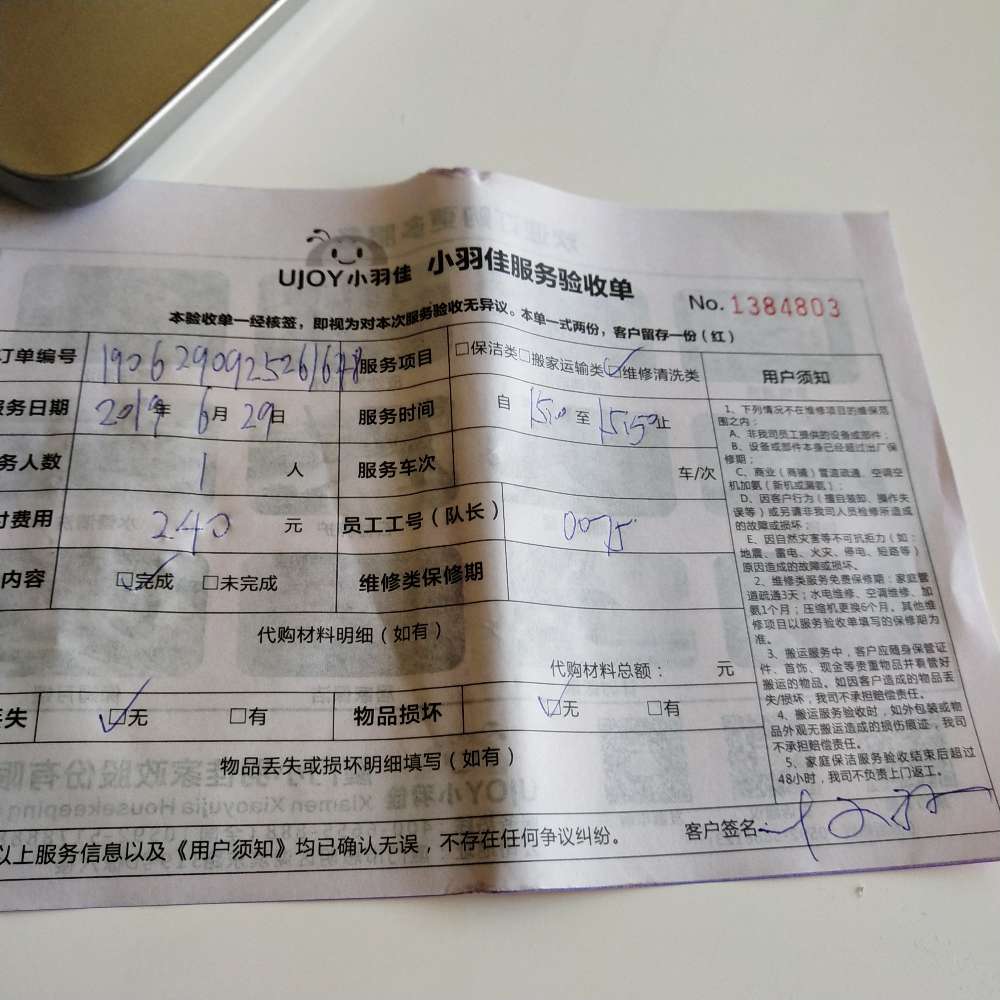 UJOY小羽佳 小羽佳服务验收单
No.1384803
本验收单一经核签，即视为对本次服务验收无异议。本单一式两份，客户留存一份（红）
订单编号 190629092526167 服务项目 □保洁类□搬家运输类☑维修清洗类
务日期 2019年 6月 29日 服务时间 自 15:00 至 15:50止
务人数 1 人 服务车次 车/次
付费用 240 元 员工工号（队长） 0075
内容 ☑完成 □未完成 维修类保修期
代购材料明细（如有）
代购材料总额： 元
失 ☑无 □有 物品损坏 ☑无 □有
物品丢失或损坏明细填写（如有）
以上服务信息以及《用户须知》均已确认无误，不存在任何争议纠纷。
客户签名
用户须知
1、下列情况不在维修项目的维保范
围之内：
A、非我司员工提供的设备或部件；
B、设备或部件本身已经超过出厂保
修期；
C、商业（商铺）管道疏通，空调空
机加氨（新机或漏氨）；
D、因客户行为（擅自装卸、操作失
误等）或另请非我司人员检修所造成
的故障或损坏；
E、因自然灾害等不可抗拒力（如：
地震、雷电、火灾、停电、短路等）
原因造成的故障或损坏。
2、维修类服务免费保修期：家庭管
道疏通3天；水电维修、空调维修、加
氨1个月；压缩机更换6个月。其他维
修项目以服务验收单填写的保修期为
准。
3、搬运服务中，客户应随身保管证
件、首饰、现金等贵重物品并看管好
搬运的物品。如因客户造成的物品丢
失/损坏，我司不承担赔偿责任。
4、搬运服务验收时，如外包装或物
品外观无搬运造成的损伤痕迹，我司
不承担赔偿责任。
5、家庭保洁服务验收结束后超过
48小时，我司不负责上门返工。